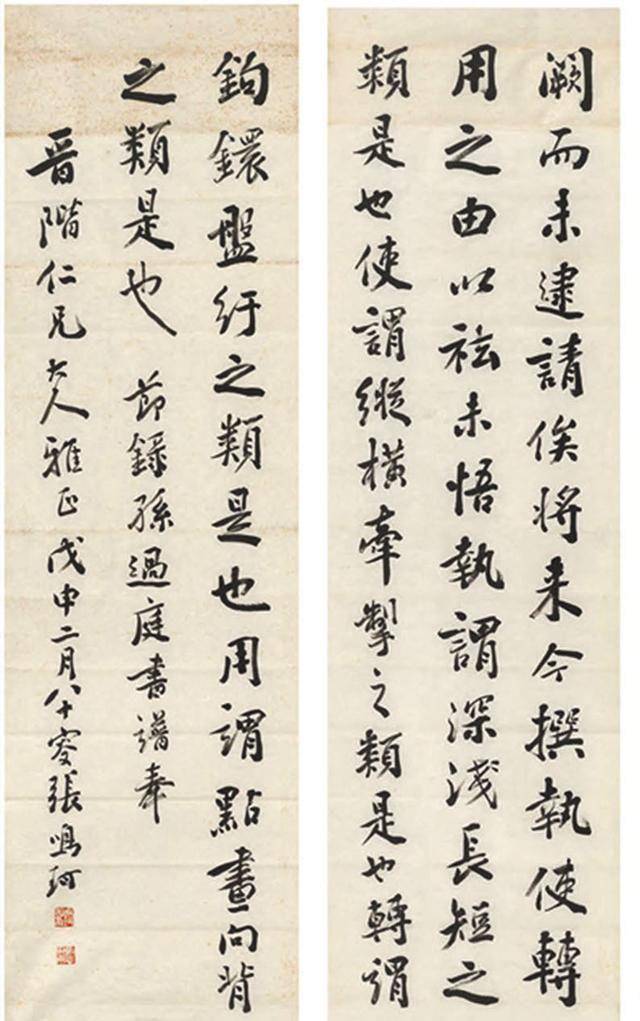 闕而未逮請俟將来今撰執使轉
用之由以祛未悟執謂深淺長短之
類是也使謂縱橫牽掣之類是也轉謂
鉤鐶盤紆之類是也用謂點畫向背
之類是也 節錄孫過庭書譜奉
晉階仁兄大人雅正戊申二月八十叟張鳴珂